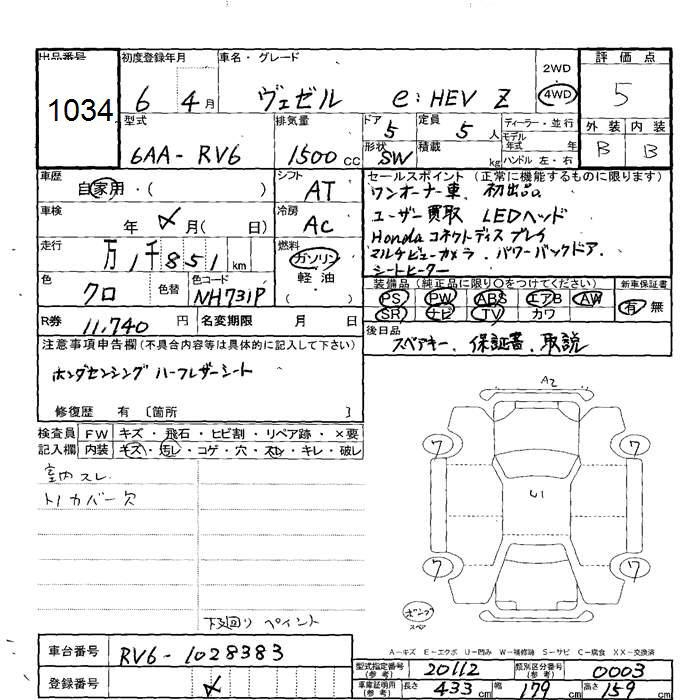 出品番号 初度登録年月 車名・グレード 2WD 評価点
1034 6 4月 ヴェゼル e:HEV Z 4WD 5
型式 排気量 ドア 定員 ディーラー・並行 外装 内装
6AA-RV6 1500cc 5 5人 モデル年式 年 B B
形状 SW 積載 kg ハンドル 左・右
車歴 シフト セールスポイント (正常に機能するものに限ります)
自家用・( ) AT ワンオーナー車、初出品。
車検 冷房 ユーザー買取 LEDヘッド
年 月( 日) AC Honda コネクトディスプレイ
走行 燃料 マルチビューカメラ、パワーバックドア、
万1千851km ガソリン シートヒーター
軽油
色 色替 色コード 装備品 (純正品に限り○をつけてください) 新車保証書
クロ NH731P PS PW ABS エアB AW 有 無
SR ナビ TV カワ
R券 11,740円 名変期限 月 日 後日品
スペアキー、保証書、取説
注意事項申告欄(不具合内容等は具体的に記入して下さい)
ホンダセンシング ハーフレザーシート
修復歴 有 〔箇所 〕
検査員 FW キズ・飛石・ヒビ割・リペア跡・×要
記入欄 内装 キズ・汚レ・コゲ・穴・スレ・キレ・破レ
室内スレ
トノカバー欠
A2
7 7
U1
7 7
ボンプ
スペア
下廻りペイント
A-キズ E-エクボ U-凹み W-補修跡 S-サビ C-腐食 XX-交換済
車台番号 RV6-1028383
型式指定番号(参考) 20112 類別区分番号(参考) 0003
登録番号
車庫証明用(参考) 長さ 433cm 幅 179cm 高さ 159cm